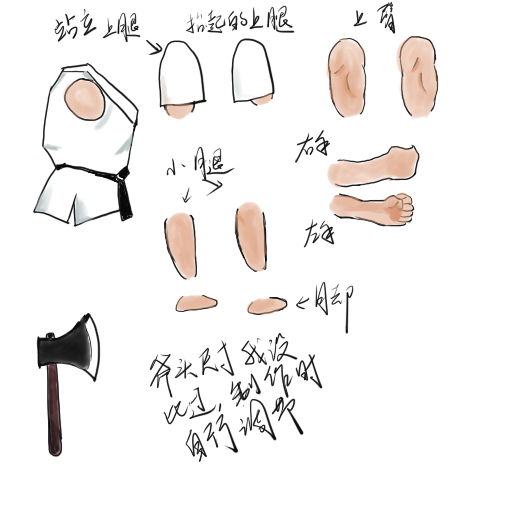 站立上腿
抬起的上腿
上臂
右手
小腿
左手
脚
斧头尺寸我没
比过，制作时
自行调节